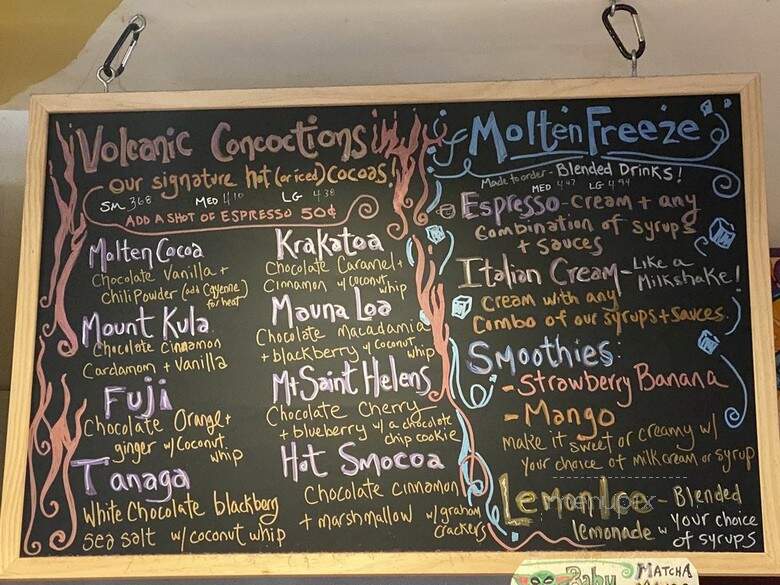 Volcanic Concoctions!
our signature hot (or iced) cocoas!
SM 368 MED 410 LG 438
ADD A SHOT OF ESPRESSO 50¢
Molten Cocoa
Chocolate Vanilla +
Chili Powder (add Cayenne)
for heat
Mount Kula
Chocolate Cinnamon
Cardamon + Vanilla
Fuji
Chocolate Orange +
ginger w/ Coconut
whip
Tanaga
White Chocolate blackberry
Sea salt w/ coconut whip
Krakatoa
Chocolate Caramel +
Cinnamon w/ coconut
whip
Mauna Loa
Chocolate macadamia
+ blackberry w/ coconut
whip
Mt Saint Helens
Chocolate Cherry
+ blueberry w/ a chocolate
chip cookie
Hot Smocoa
Chocolate cinnamon
+ marshmallow w/ graham
crackers
Molten Freeze
Made to order - Blended Drinks!
MED 447 LG 494
Espresso - cream + any
Combination of syrups
+ sauces
Italian Cream - Like a
Milkshake!
Cream with any
Combo of our syrups + sauces.
Smoothies:
- Strawberry Banana
- Mango
make it sweet or creamy w/
your choice of milk cream or syrup
Lemon Ice - Blended
lemonade w your choice
of syrups
menupix
Baby
MATCHA